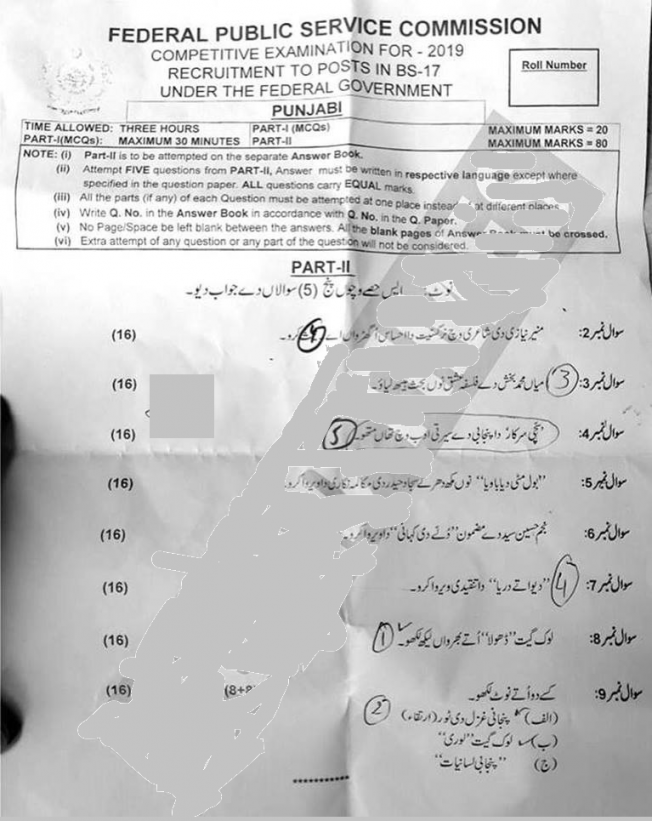 FEDERAL PUBLIC SERVICE COMMISSION
COMPETITIVE EXAMINATION FOR - 2019
RECRUITMENT TO POSTS IN BS-17
UNDER THE FEDERAL GOVERNMENT
Roll Number
PUNJABI
TIME ALLOWED: THREE HOURS PART-I (MCQs) MAXIMUM MARKS = 20
PART-I(MCQs): MAXIMUM 30 MINUTES PART-II MAXIMUM MARKS = 80
NOTE: (i) Part-II is to be attempted on the separate Answer Book.
(ii) Attempt FIVE questions from PART-II, Answer must be written in respective language except where
specified in the question paper. ALL questions carry EQUAL marks.
(iii) All the parts (if any) of each Question must be attempted at one place instead of at different places.
(iv) Write Q. No. in the Answer Book in accordance with Q. No. in the Q. Paper.
(v) No Page/Space be left blank between the answers. All the blank pages of Answer Book must be crossed.
(vi) Extra attempt of any question or any part of the question will not be considered.
PART-II
نوٹ: ایس حصے وچوں پنج (5) سوالاں دے جواب دیو۔
سوال نمبر 2: منیر نیازی دی شاعری وچ نرگسیت دا احساس اُگھڑواں اے کرو۔ (16)
سوال نمبر 3: 3 میاں محمد بخش دے فلسفہ عشق نوں بحث ہیٹھ لیاؤ۔ (16)
سوال نمبر 4: "سچی سرکار" دا پنجابی دے سیرتی ادب وچ تھاں متھو۔ 5 (16)
سوال نمبر 5: "بول مٹی دیا باویا" نوں مکھ دھرے سجاد حیدر دی مکالمہ نگاری دا ویروا کرو۔ (16)
سوال نمبر 6: نجم حسین سید دے مضمون "ڈنے دی کہانی" دا ویروا کرو۔ (16)
سوال نمبر 7: 4 "دیوا تے دریا" دا تنقیدی ویروا کرو۔ (16)
سوال نمبر 8: لوک گیت "ڈھولا" اُتے بھرواں لیکھ لکھو۔ 1 (16)
سوال نمبر 9: کسے دو اُتے نوٹ لکھو۔ (8+8) (16)
(الف) پنجابی غزل دی ٹور (ارتقاء) 2
(ب) لوک گیت "لوری"
(ج) "پنجابی لسانیات"